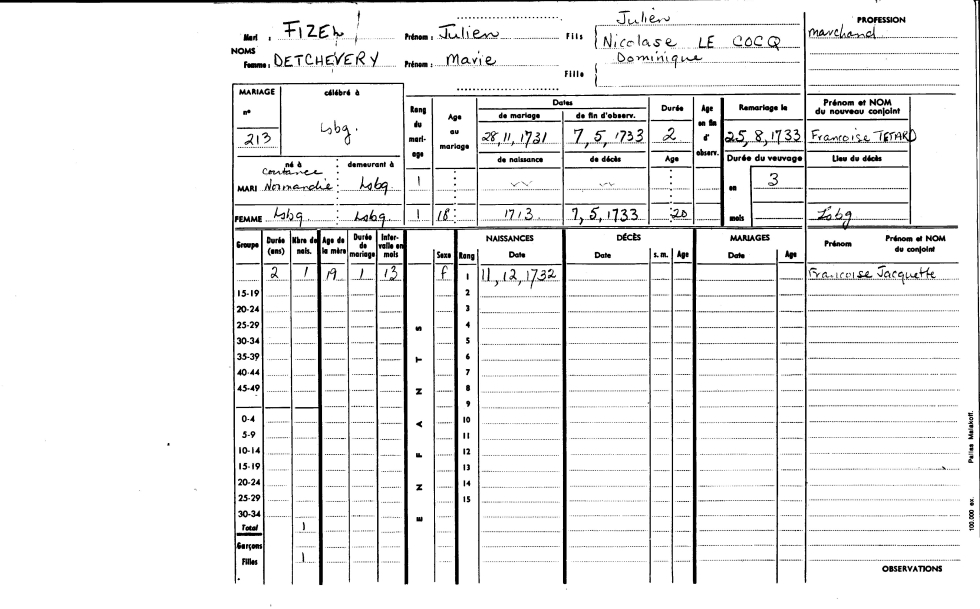 Mari : FIZEL Prénom : Julien Fils Julien PROFESSION
Nicolase LE COCQ marchand
NOMS
Femme : DETCHEVERY Prénom : Marie Fille Dominique
MARIAGE célébré à
n° 213 Lsbg.
Rang du mariage Age au mariage Dates Durée Age en fin d'observ. Remariage le Prénom et NOM du nouveau conjoint
de mariage de fin d'observ.
28, 11, 1731 7, 5, 1733 2 25, 8, 1733 Francoise TETARD
né à demeurant à de naissance de décès Age Durée du veuvage Lieu du décès
coutance
MARI Normandie Lsbg 1 en 3
FEMME Lsbg Lsbg 1 18 1713 7, 5, 1733 20 mois Lsbg
Groupe Durée (ans) Nbre de nais. Age de la mère Durée de mariage Intervalle en mois Sexe Rang NAISSANCES DÉCÈS MARIAGES Prénom Prénom et NOM du conjoint
Date Date s. m. Age Date Age
2 1 19 1 13 f 1 11, 12, 1732 Francoise Jacquette
15-19 2
20-24 3
25-29 4
30-34 5
35-39 6
40-44 7
45-49 8
9
0-4 10
5-9 11
10-14 12
15-19 13
20-24 14
25-29 15
30-34
Total 1
Garçons
Filles 1
ENFANTS
OBSERVATIONS
100.000 ex. Pallas Malakoff.